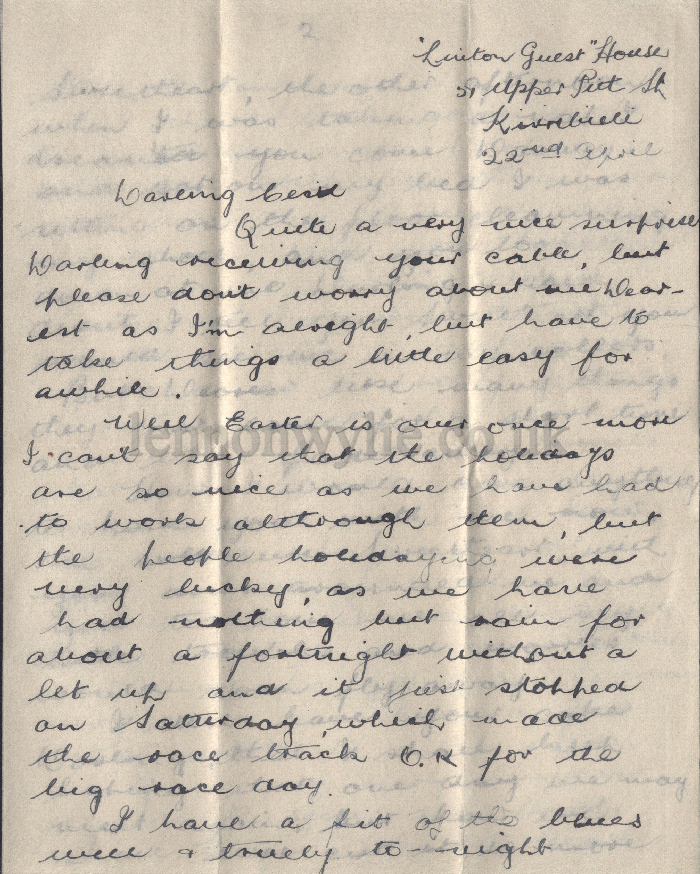 2
"Linton Guest" House
51 Upper Pitt St
Kirribilli
22nd April
Darling Cecil
Quite a very nice surprise
Darling receiving your cable, but
please don't worry about me Dear-
est as I'm alright, but have to
take things a little easy for
awhile.
Well Easter is over once more
I can't say that the holidays
are so nice as we have had
to work although them, but
the people holidaying were
very lucky, as we have
had nothing but rain for
about a fortnight without a
let up and it just stopped
on Saturday, which made
the race track O.K for the
big race day.
I have a fit of the blues
well & truely to-night
lennonwylie.co.uk